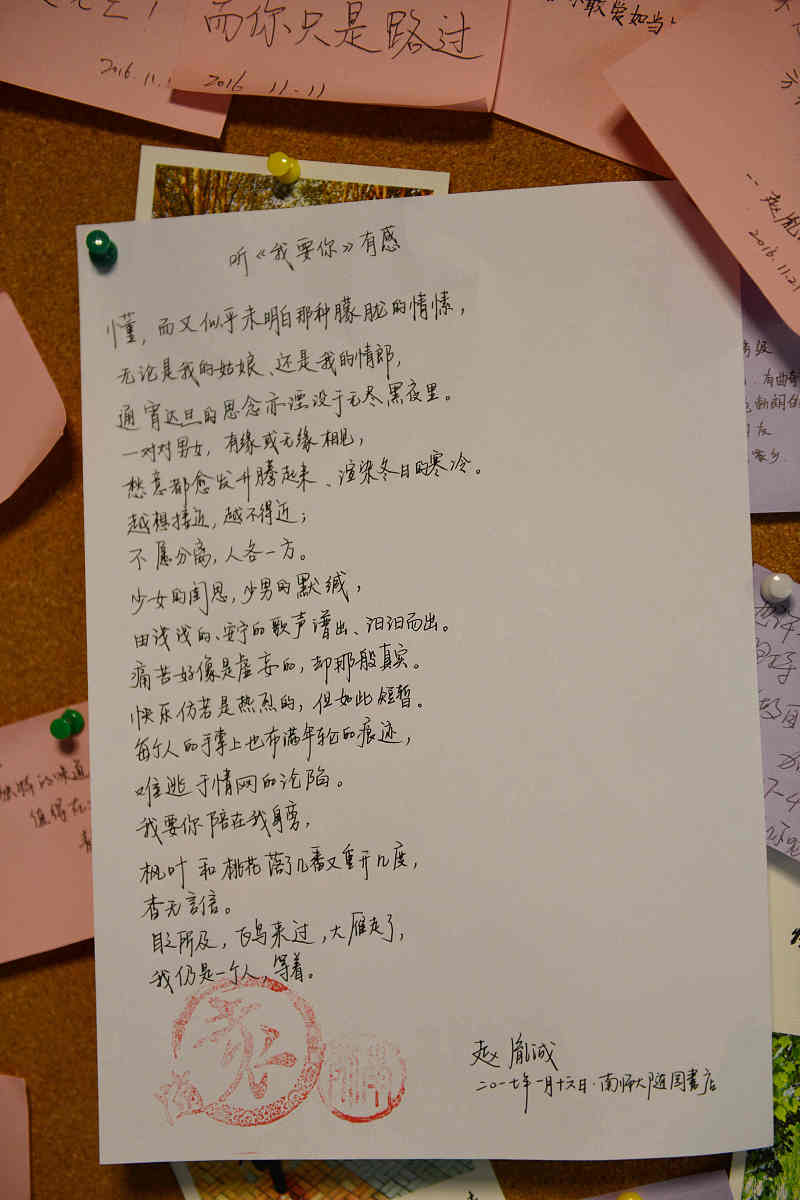 而你只是路过
2016.11.1
2016 11.11
敢爱如当
2016.11.21
听《我要你》有感
懂，而又似乎未明白那种朦胧的情愫，
无论是我的姑娘、还是我的情郎，
通宵达旦的思念亦湮没于无尽黑夜里。
一对对男女，有缘或无缘相见，
愁意都愈发升腾起来、渲染冬日的寒冷。
越想接近，越不得近；
不愿分离，人各一方。
少女的闺思，少男的默缄，
由浅浅的、安宁的歌声谱出、汩汩而出。
痛苦好像是虚妄的，却那般真实。
快乐仿若是热烈的，但如此短暂。
每个人的手掌上也布满年轮的痕迹，
难逃于情网的沦陷。
我要你陪在我身旁，
枫叶和桃花落了几番又重开几度，
杳无言信。
目之所及，飞鸟来过，大雁走了，
我仍是一个人，等着。
赵胤诚
二〇一七年一月十六日·南师大随园书店
的味道
值得在